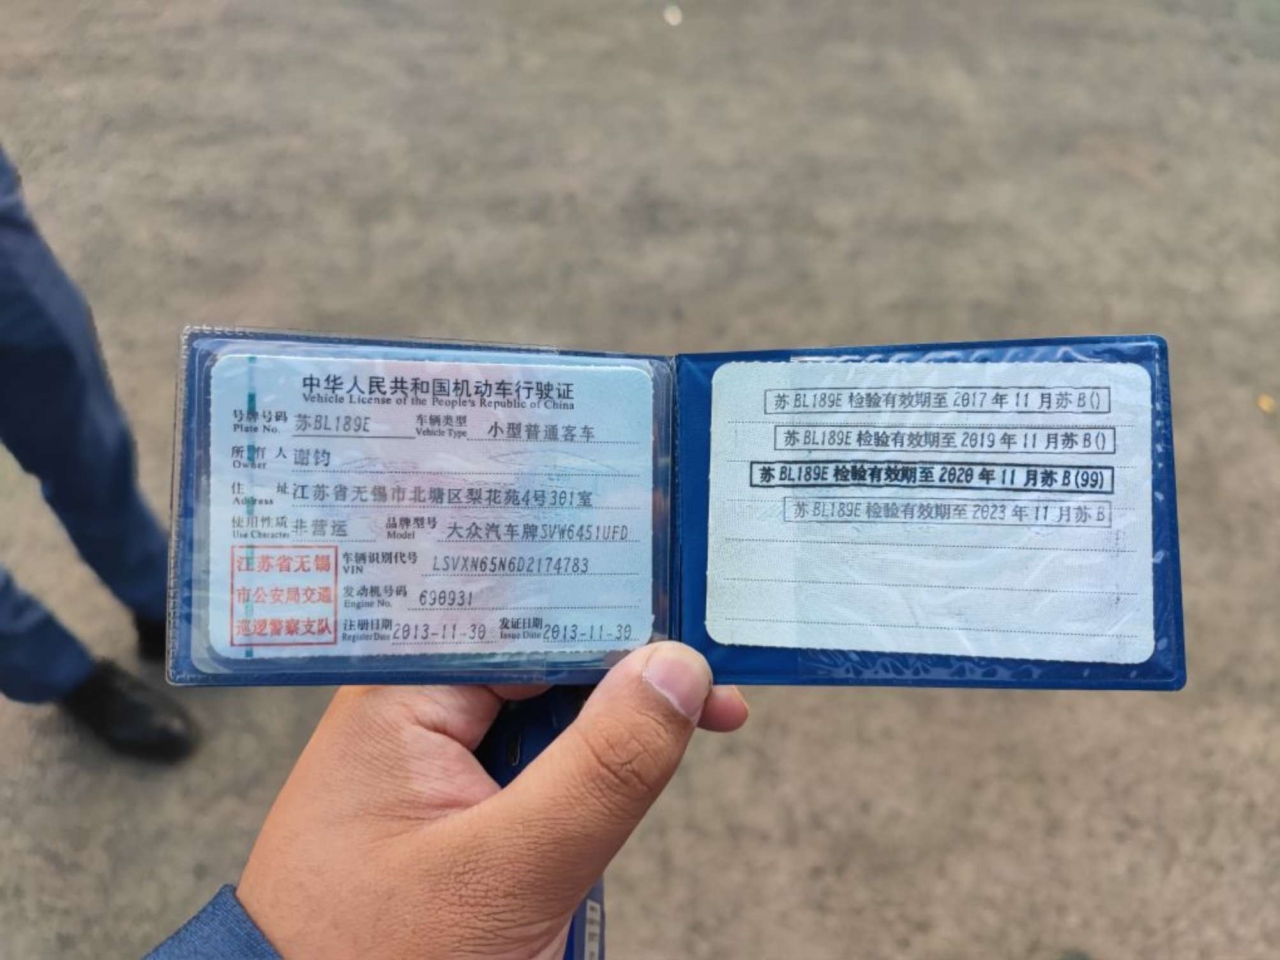 中华人民共和国机动车行驶证
Vehicle License of the People's Republic of China
号牌号码 苏BL189E 车辆类型 小型普通客车
Plate No. Vehicle Type
所有人 谢钧
Owner
住址 江苏省无锡市北塘区梨花苑4号301室
Address
使用性质 非营运 品牌型号 大众汽车牌SVW6451UFD
Use Character Model
江苏省无锡
市公安局交通
巡逻警察支队
车辆识别代号 LSVXN65N6D2174783
VIN
发动机号码 690931
Engine No.
注册日期 2013-11-30 发证日期 2013-11-30
Register Date Issue Date
苏BL189E 检验有效期至 2017 年 11 月苏 B()
苏 BL189E 检验有效期至 2019 年 11 月苏 B()
苏 BL189E 检验有效期至 2020 年 11 月苏 B(99)
苏 BL189E 检验有效期至 2023 年 11 月苏 B